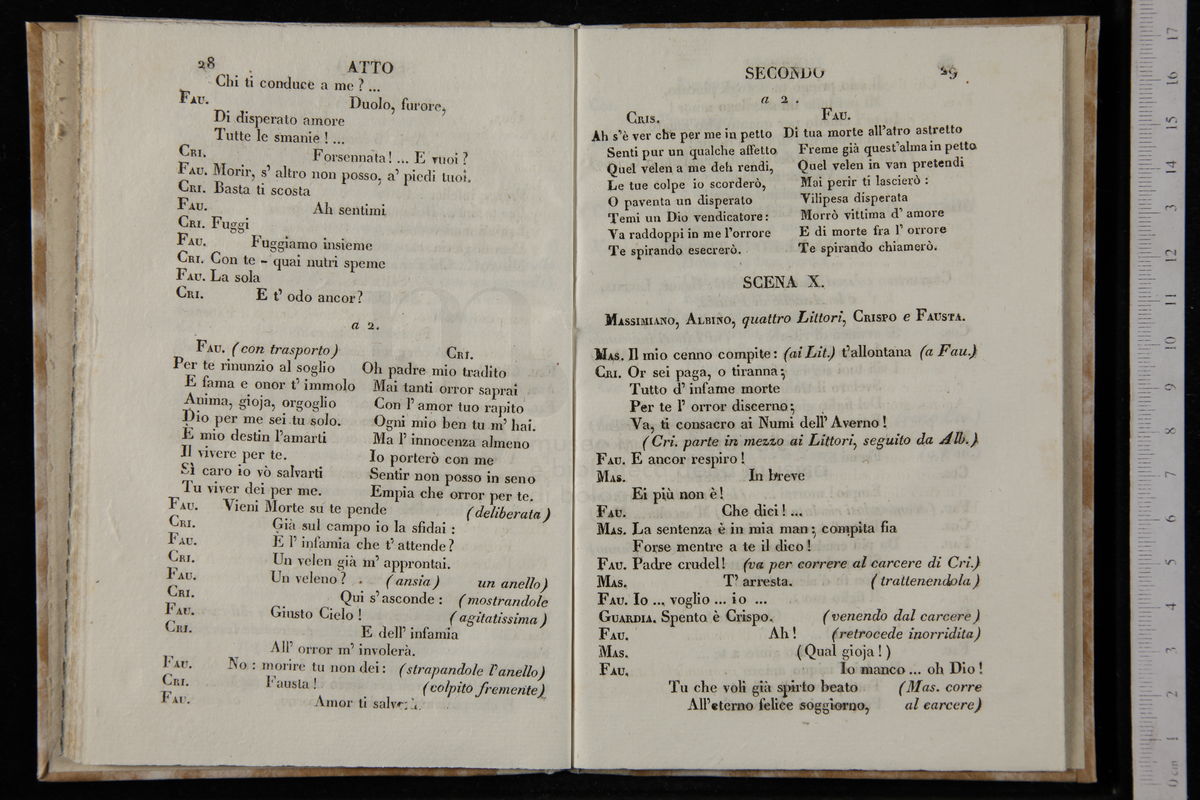 28 ATTO
Chi ti conduce a me ? ...
FAU. Duolo, furore,
Di disperato amore
Tutte le smanie ! ...
CRI. Forsennata ! ... E vuoi ?
FAU. Morir, s' altro non posso, a' piedi tuoi.
CRI. Basta ti scosta
FAU. Ah sentimi
CRI. Fuggi
FAU. Fuggiamo insieme
CRI. Con te - quai nutri speme
FAU. La sola
CRI. E t' odo ancor?
a 2.
FAU. (con trasporto)
Per te rinunzio al soglio
E fama e onor t' immolo
Anima, gioja, orgoglio
Dio per me sei tu solo.
È mio destin l'amarti
Il vivere per te.
Sì caro io vò salvarti
Tu viver dei per me.
CRI.
Oh padre mio tradito
Mai tanti orror saprai
Con l' amor tuo rapito
Ogni mio ben tu m' hai.
Ma l' innocenza almeno
Io porterò con me
Sentir non posso in seno
Empia che orror per te.
FAU. Vieni Morte su te pende (deliberata)
CRI. Già sul campo io la sfidai :
FAU. E l' infamia che t' attende?
CRI. Un velen già m' approntai.
FAU. Un veleno ? . (ansia) un anello)
CRI. Qui s' asconde : (mostrandole
FAU. Giusto Cielo ! (agitatissima)
CRI. E dell' infamia
All' orror m' involerà.
FAU. No : morire tu non dei : (strapandole l'anello)
CRI. Fausta ! (colpito fremente)
FAU. Amor ti salverà.
SECONDO 29
a 2 .
CRIS.
Ah s'è ver che per me in petto
Senti pur un qualche affetto
Quel velen a me deh rendi,
Le tue colpe io scorderò,
O paventa un disperato
Temi un Dio vendicatore :
Va raddoppi in me l'orrore
Te spirando esecrerò.
FAU.
Di tua morte all'atro astretto
Freme già quest'alma in petto
Quel velen in van pretendi
Mai perir ti lascierò :
Vilipesa disperata
Morrò vittima d' amore
E di morte fra l' orrore
Te spirando chiamerò.
SCENA X.
MASSIMIANO, ALBINO, quattro Littori, CRISPO e FAUSTA.
MAS. Il mio cenno compite : (ai Lit.) t'allontana (a Fau.)
CRI. Or sei paga, o tiranna ;
Tutto d' infame morte
Per te l' orror discerno ;
Va, ti consacro ai Numi dell' Averno !
(Cri. parte in mezzo ai Littori, seguito da Alb.)
FAU. E ancor respiro !
MAS. In breve
Ei più non è !
FAU. Che dici ! ...
MAS. La sentenza è in mia man ; compita fia
Forse mentre a te il dico !
FAU. Padre crudel ! (va per correre al carcere di Cri.)
MAS. T' arresta. (trattenendola)
FAU. Io ... voglio ... io ...
GUARDIA. Spento è Crispo. (venendo dal carcere)
FAU. Ah ! (retrocede inorridita)
MAS. (Qual gioja !)
FAU. Io manco ... oh Dio !
Tu che voli già spirto beato (Mas. corre
All'eterno felice soggiorno, al carcere)
17
16
15
14
13
12
11
10
9
8
7
6
5
4
3
2
1
0 cm